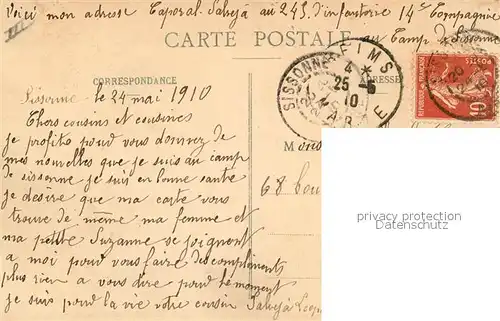 Voici mon adress Caporal Salvéjà au 245 d'infanterie 14e Compagnie
au Camp de Sissonne
CARTE POSTALE
CORRESPONDANCE
ADRESSE
SISSONNE
REIMS
25 -5
10
MARNE
POSTES
REPUBLIQUE FRANÇAISE
10
Sissonne le 24 mai 1910
Chers cousins et cousines
je profite pour vous donnez de
mes nouvelles que je suis au camp
de sissonne je suis en bonne sante
je desire que ma carte vous
trouve de même ma femme et
ma petite Suzanne se joignent
a moi pour vous faire des compliments
plus rien a vous dire pour le moment
je suis pour la vie votre cousin Salvéjà
68
privacy protection
Datenschutz